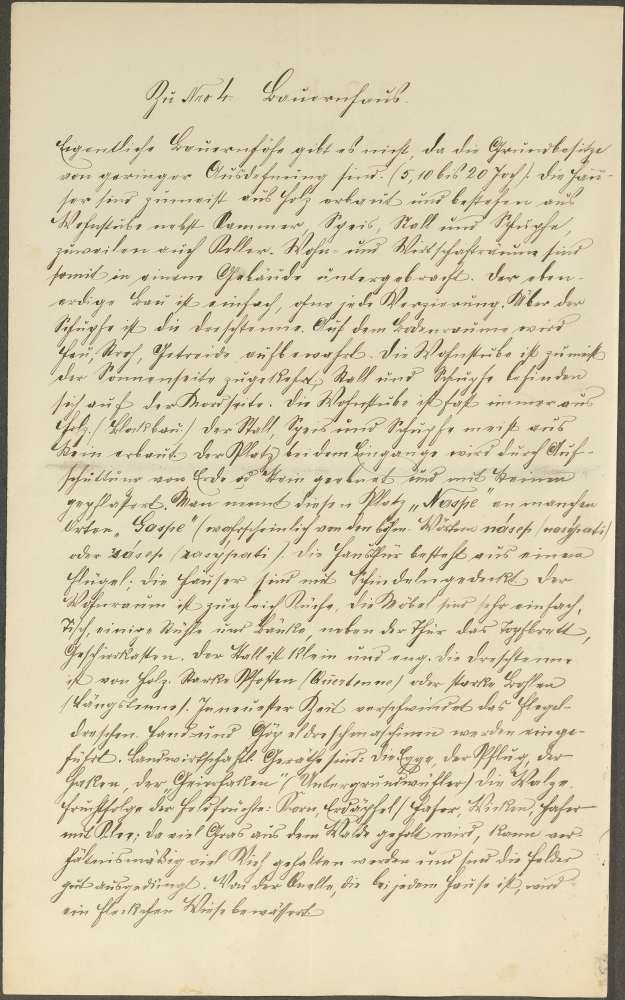 Zu Nro 4. Bauernhaus.
Eigentliche Bauernhöfe gibt es nicht, da die Grundbesitze
von geringer Ausdehnung sind. (5, 10 bis 20 Joch). Die Häu-
ser sind zumeist aus Holz erbaut und bestehen aus
Wohnstube nebst Kammer, Speis, Stall und Schupfe,
zuweilen auch Keller. Wohn- und Wirtschaftsräume sind
somit in einem Gebäude untergebracht. Der eben-
erdige Bau ist einfach, ohne jede Verzierung. Über der
Schupfe ist die Dreschtenne. Auf dem Bodenraume wird
Heu, Stroh, Getreide aufbewahrt. Die Wohnstube ist zumeist
der Sonnenseite zugekehrt; Stall und Schupfe befinden
sich auf der Nordseite. Die Wohnstube ist fast immer aus
Holz (Blockbau) der Stall, Speis und Schupfe meist aus
Stein erbaut. Der Platz bei dem Eingange wird durch Auf-
schüttung von Erde od Stein geebnet und mit Steinen
gepflastert. Man nennt diesen Platz „Naspe" an manchen
Orten „Saspe" (wahrscheinlich von den böhm. Wörtern násep (nasypati)
oder zásep (zasypati). Die Hausthür besteht aus einem
Flügel; die Häuser sind mit Schindeln gedeckt. Der
Wohnraum ist zugleich Küche, die Möbel sind sehr einfach,
Tisch, einige Stühle und Bänke, neben der Thür das Topfbrett,
Geschirrkasten. Der Stall ist klein und eng. Die Dreschtenne
ist von Holz. Starke Pfosten (Quertenne) oder starke Bohlen
(Längstenne). In neuester Zeit verschwindet das Flegel-
dreschen. Hand- und Göpeldreschmaschinen werden einge-
führt. Landwirtschaftl. Geräthe sind: Die Egge, der Pflug, der
Haken, der „Geierhaken" (Untergrundwühler) die Walze.
Fruchtfolge der Feldfrüchte: Korn, Erdäpfel (Hafer, Wicken, Hafer
mit Klee; da viel Gras aus dem Walde geholt wird, kann ver-
hältnismäßig viel Vieh gehalten werden und sind die Felder
gut ausgedüngt. Von der Quelle, die bei jedem Hause ist, wird
ein Fleckchen Wiese bewässert.